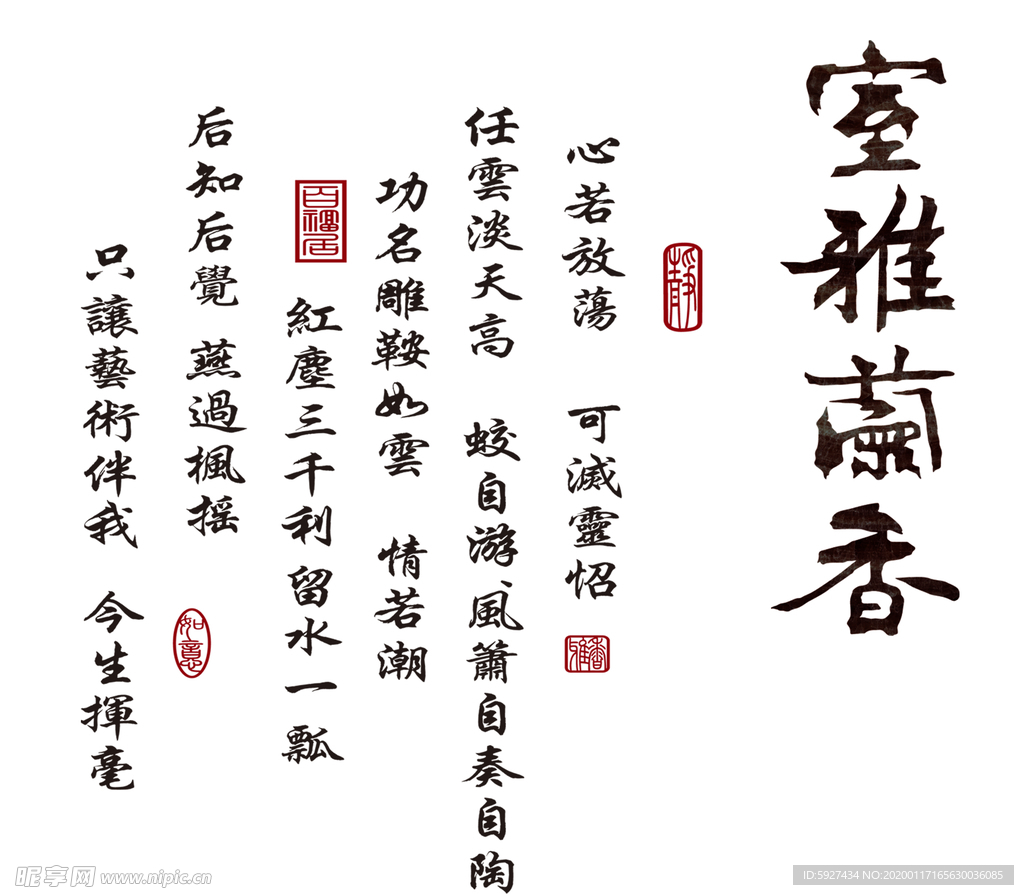 室雅蘭香
靜
心若放蕩 可滅靈怊
雅香
任雲淡天高 蛟自游風簫自奏自陶
功名雕鞍如雲 情若潮
百福居
紅塵三千利留水一瓢
后知后覺 燕過楓摇
如意
只讓藝術伴我 今生揮毫
昵享网 www.nipic.cn
ID:5927434 NO:20200117165630036085